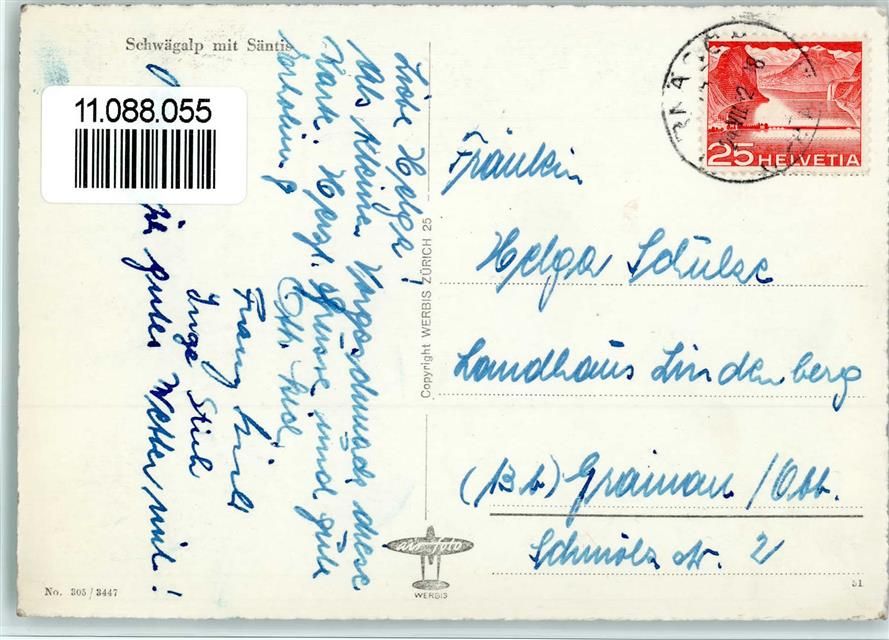 Schwägalp mit Säntis
11.088.055
Liebe Helga!
Als kleinen Vorgeschmack diese
Karte. Herzl. Grüsse und gute
Erholung
Franz
Inge Stich
gutes Wetter mit!
Copyright WERBIS ZÜRICH 25
WERBIS
No. 305/3447
25 HELVETIA
Fräulein
Helga Schulze
Landhaus Lindenberg
(Bb) Grainau/Obb.
Schmölz str. 2
51